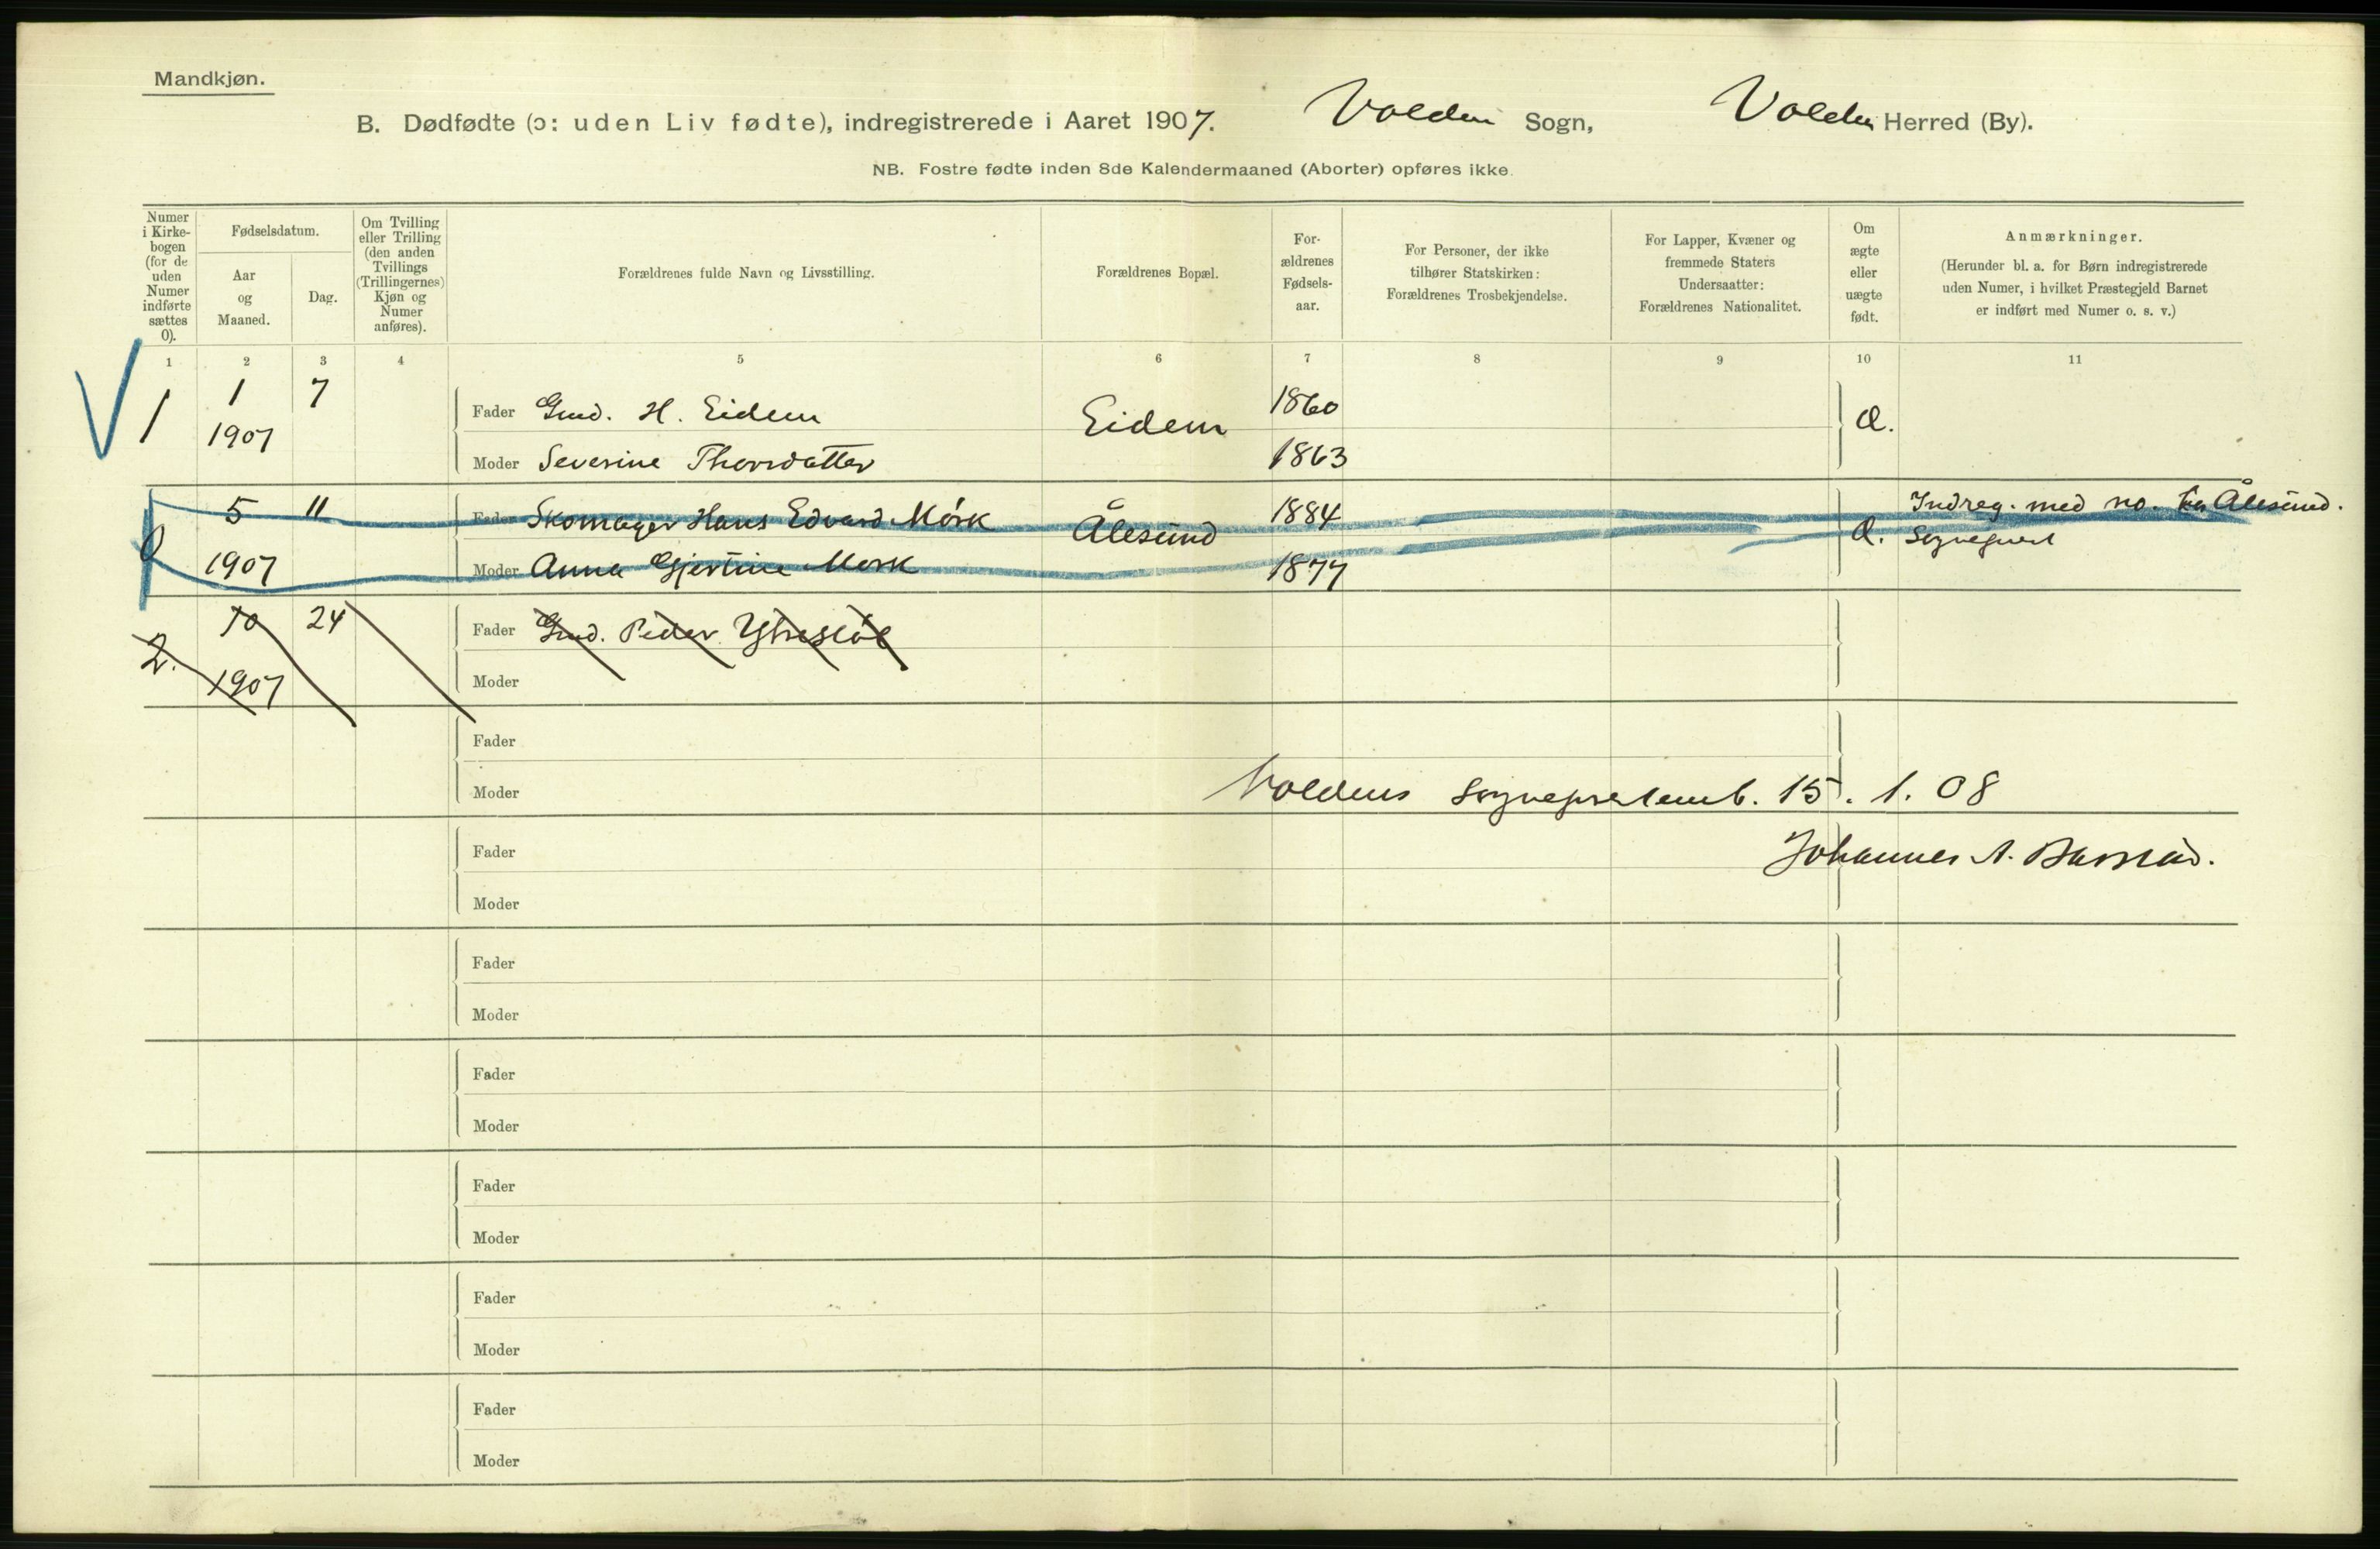 Mandkjøn.
B. Dødfødte (ɔ: uden Liv fødte), indregistrerede i Aaret 1907. Volden Sogn, Volden Herred (By).
NB. Fostre fødte inden 8de Kalendermaaned (Aborter) opføres ikke.
Numer i Kirke-bogen (for de uden Numer indførte sættes 0).
Fødselsdatum.
Aar og Maaned.
Dag.
Om Tvilling eller Trilling (den anden Tvillings (Trillingernes) Kjøn og Numer anføres).
Forældrenes fulde Navn og Livsstilling.
Forældrenes Bopæl.
For-ældrenes Fødsels-aar.
For Personer, der ikke tilhører Statskirken: Forældrenes Trosbekjendelse.
For Lapper, Kvæner og fremmede Staters Undersaatter: Forældrenes Nationalitet.
Om ægte eller uægte født.
Anmærkninger.
(Herunder bl. a. for Børn indregistrerede uden Numer, i hvilket Præstegjeld Barnet er indført med Numer o. s. v.)
1 2 3 4 5 6 7 8 9 10 11
V 1 1 7 Fader Gmd. H. Eidem Eidem 1860 Æ.
1907 Moder Severine Thorsdatter 1863
0 5 11 Fader Skomager Hans Edvard Mórk Ålesund 1884 Æ. Indreg. med no. Ålesund.
1907 Moder Anna Gjertine Mork 1877
2. 10 24 Fader Gmd. Peder
1907 Moder
Fader
Moder Voldens 15. 1. 08
Fader Johannes A. Barstad.
Moder
Fader
Moder
Fader
Moder
Fader
Moder
Fader
Moder
Fader
Moder